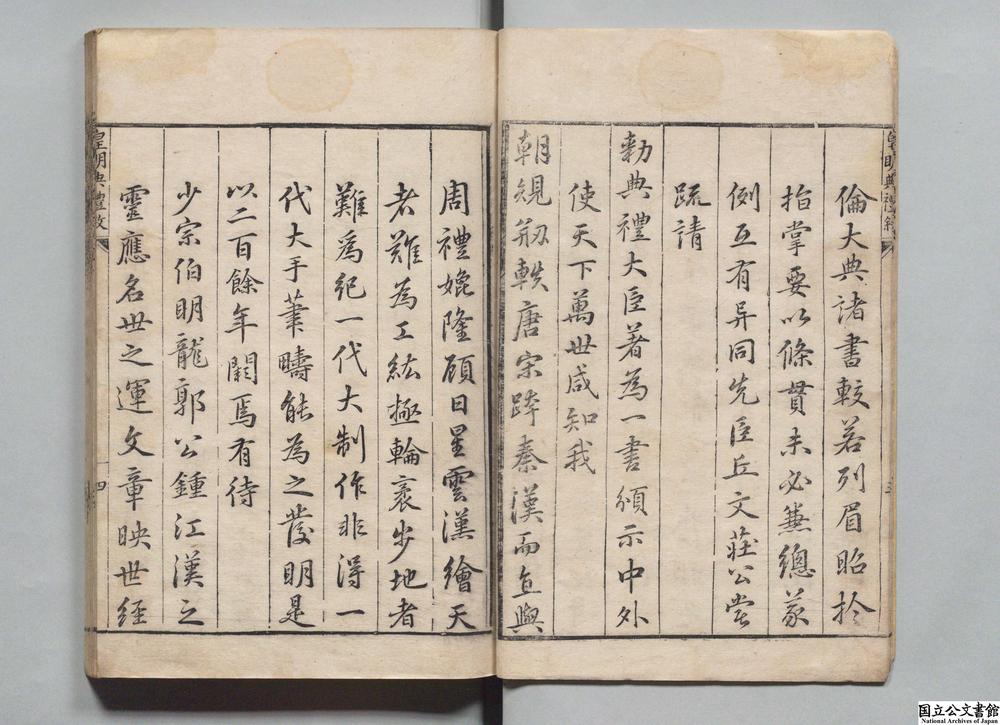 倫大典諸書較若列眉昭於
指掌要以條貫未必兼總義
例互有异同先臣丘文莊公嘗
疏請
勅典禮大臣著為一書頒示中外
使天下萬世咸知我
朝規翦軼唐宋跨秦漢而直與
周禮媲隆顧日星雲漢繪天
者難為工紘極輪裹步地者
難爲紀一代大制作非得一
代大手筆疇能為之發明是
以二百餘年闕焉有待
少宗伯明龍郭公鍾江漢之
靈應名世之運文章映世經
皇明典禮
四
国立公文書館
National Archives of Japan